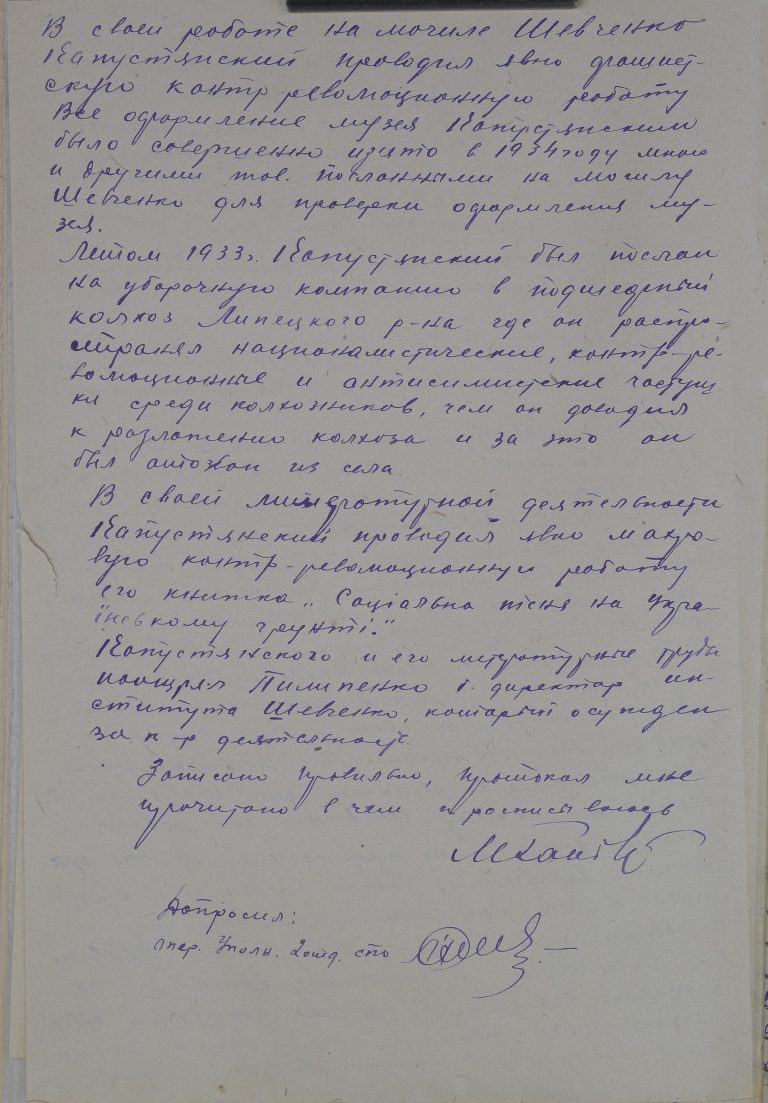 В своей работе на могиле Шевченко
Капустянский проводил явно фашист-
скую контр революционную работу
Все оформление музея Капустянским
было совершенно изъято в 1934 году мною
и другими тов. посланными на могилу
Шевченко для проверки оформления му-
зея.
Летом 1933 г. Капустянский был послан
на уборочную компанию в подшефный
колхоз Липецкого р-на где он распро-
странял националистические, контр-ре-
волюционные и антисимитские частуш
ки среди колхозников, чем он доводил
к разложению колхоза и за это он
был отозван из села.
В своей литературной деятельности
Капустянский проводил явно махро-
вую контр-революционную работу
его книжка „Соціальна пісня на Укра-
їнському грунті."
Капустянского и его литературные труды
поощрял Пилипенко б. директор ин-
ститута Шевченко, который осужден
за к-р деятельность.
Записано правильно, протокол мне
прочитано в чем и росписываюсь
Допросил:
опер. Уполн. 2 отд. СПО